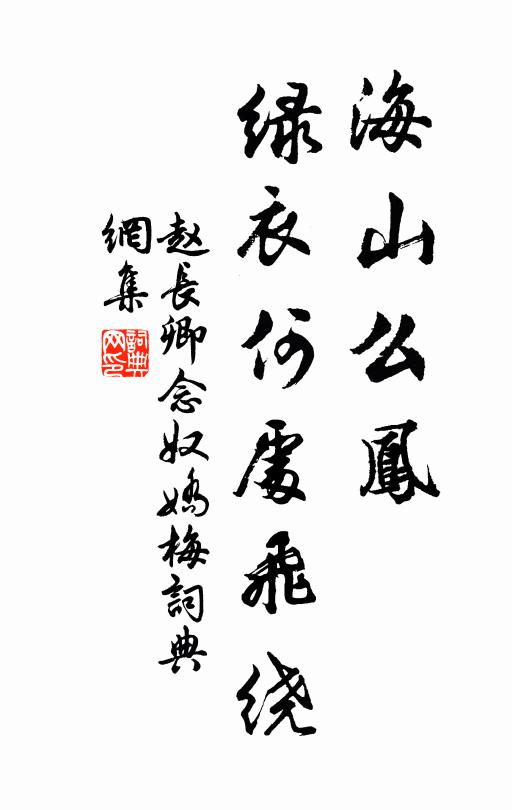 海山么鳳
緑衣何處飛绕
赵長卿念奴嬌梅詞典
網集
詞典
网印